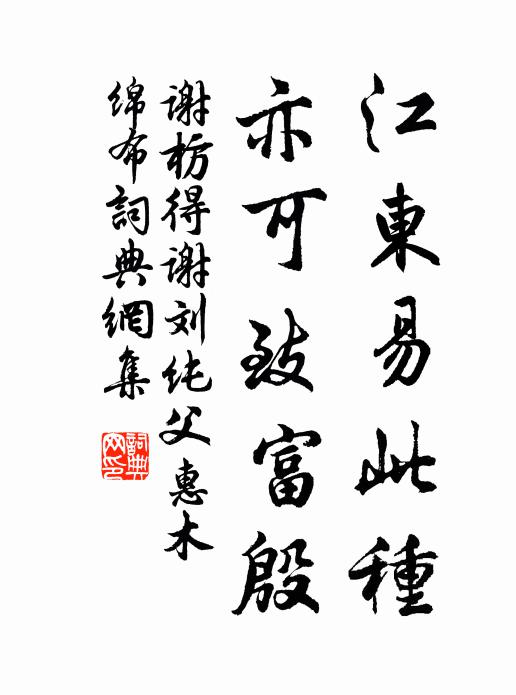 江東易此種
亦可致富殷
謝枋得謝刘纯父惠木
綿布詞典網集
詞典網印